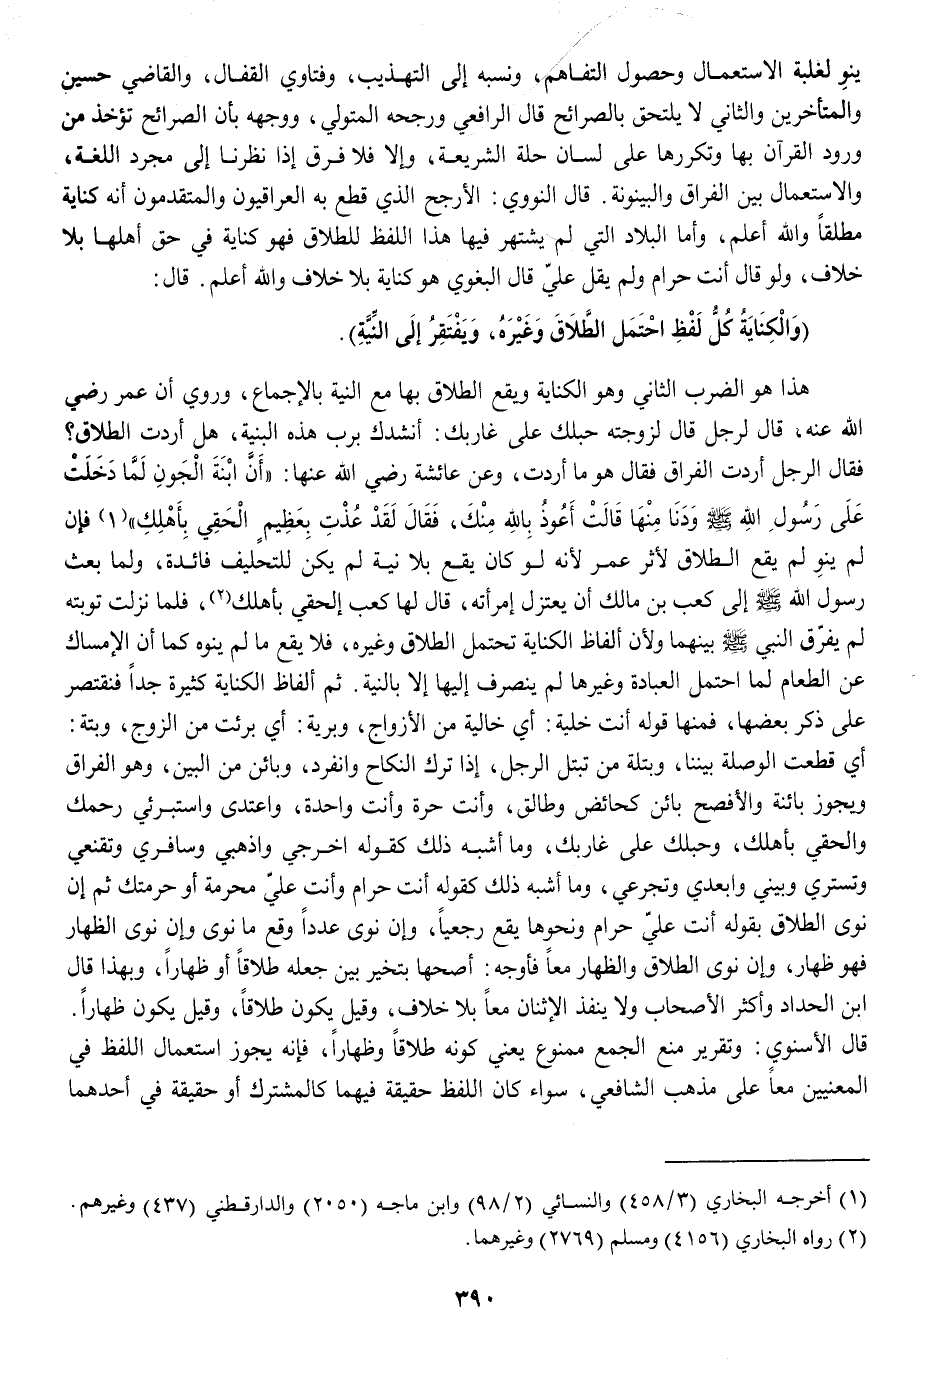 ينوِ لغلبة الاستعمال وحصول التفاهم، ونسبه إلى التهذيب، وفتاوي القفال، والقاضي حسين
والمتأخرين والثاني لا يلتحق بالصرائح قال الرافعي ورجحه المتولي، ووجهه بأن الصرائح تؤخذ من
ورود القرآن بها وتكررها على لسان حلة الشريعة، وإلا فلا فرق إذا نظرنا إلى مجرد اللغة،
والاستعمال بين الفراق والبينونة. قال النووي: الأرجح الذي قطع به العراقيون والمتقدمون أنه كناية
مطلقاً والله أعلم، وأما البلاد التي لم يشتهر فيها هذا اللفظ للطلاق فهو كناية في حق أهلها بلا
خلاف، ولو قال أنت حرام ولم يقل عليّ قال البغوي هو كناية بلا خلاف والله أعلم. قال:
(وَالْكِنَايَةُ كُلُّ لَفْظِ احْتَمَلَ الطَّلَاقَ وَغَيْرَهُ، وَيَفْتَقِرُ إلَى النِّيَّةِ).
هذا هو الضرب الثاني وهو الكناية ويقع الطلاق بها مع النية بالإجماع، وروي أن عمر رضي
الله عنه، قال لرجل قال لزوجته حبلك على غاربك: أنشدك برب هذه البنية، هل أردت الطلاق؟
فقال الرجل أردت الفراق فقال هو ما أردت، وعن عائشة رضي الله عنها: «أَنَّ ابْنَةَ الْجَونِ لَمَّا دَخَلَتْ
عَلَى رَسُولِ اللهِ ﷺ وَدَنَا مِنْهَا قَالَتْ أَعُوذُ بِاللهِ مِنْكَ، فَقَالَ لَقَدْ عُذْتِ بِعَظِيمٍ الْحَقِي بِأَهْلِكِ»(١) فإن
لم ينوِ لم يقع الطلاق لأثر عمر لأنه لو كان يقع بلا نية لم يكن للتحليف فائدة، ولما بعث
رسول الله ﷺ إلى كعب بن مالك أن يعتزل إمرأته، قال لها كعب إلحقي بأهلك(٢)، فلما نزلت توبته
لم يفرّق النبي ﷺ بينهما ولأن ألفاظ الكناية تحتمل الطلاق وغيره، فلا يقع ما لم ينوه كما أن الإمساك
عن الطعام لما احتمل العبادة وغيرها لم ينصرف إليها إلا بالنية. ثم ألفاظ الكناية كثيرة جداً فنقتصر
على ذكر بعضها، فمنها قوله أنت خلية: أي خالية من الأزواج، وبرية: أي برئت من الزوج، وبتة:
أي قطعت الوصلة بيننا، وبتلة من تبتل الرجل، إذا ترك النكاح وانفرد، وبائن من البين، وهو الفراق
ويجوز بائنة والأفصح بائن كحائض وطالق، وأنت حرة وأنت واحدة، واعتدى واستبرئي رحمك
والحقي بأهلك، وحبلك على غاربك، وما أشبه ذلك كقوله اخرجي واذهبي وسافري وتقنعي
وتستري وبيني وابعدي وتجرعي، وما أشبه ذلك كقوله أنت حرام وأنت عليّ محرمة أو حرمتك ثم إن
نوى الطلاق بقوله أنت عليّ حرام ونحوها يقع رجعياً، وإن نوى عدداً وقع ما نوى وإن نوى الظهار
فهو ظهار، وإن نوى الطلاق والظهار معاً فأوجه: أصحها بتخير بين جعله طلاقاً أو ظهاراً، وبهذا قال
ابن الحداد وأكثر الأصحاب ولا ينفذ الإثنان معاً بلا خلاف، وقيل يكون طلاقاً، وقيل يكون ظهاراً.
قال الأسنوي: وتقرير منع الجمع ممنوع يعني كونه طلاقاً وظهاراً، فإنه يجوز استعمال اللفظ في
المعنيين معاً على مذهب الشافعي، سواء كان اللفظ حقيقة فيهما كالمشترك أو حقيقة في أحدهما
(١) أخرجه البخاري (٤٥٨/٣) والنسائي (٩٨/٢) وابن ماجه (٢٠٥٠) والدارقطني (٤٣٧) وغيرهم.
(٢) رواه البخاري (٤١٥٦) ومسلم (٢٧٦٩) وغيرهما.
٣٩٠